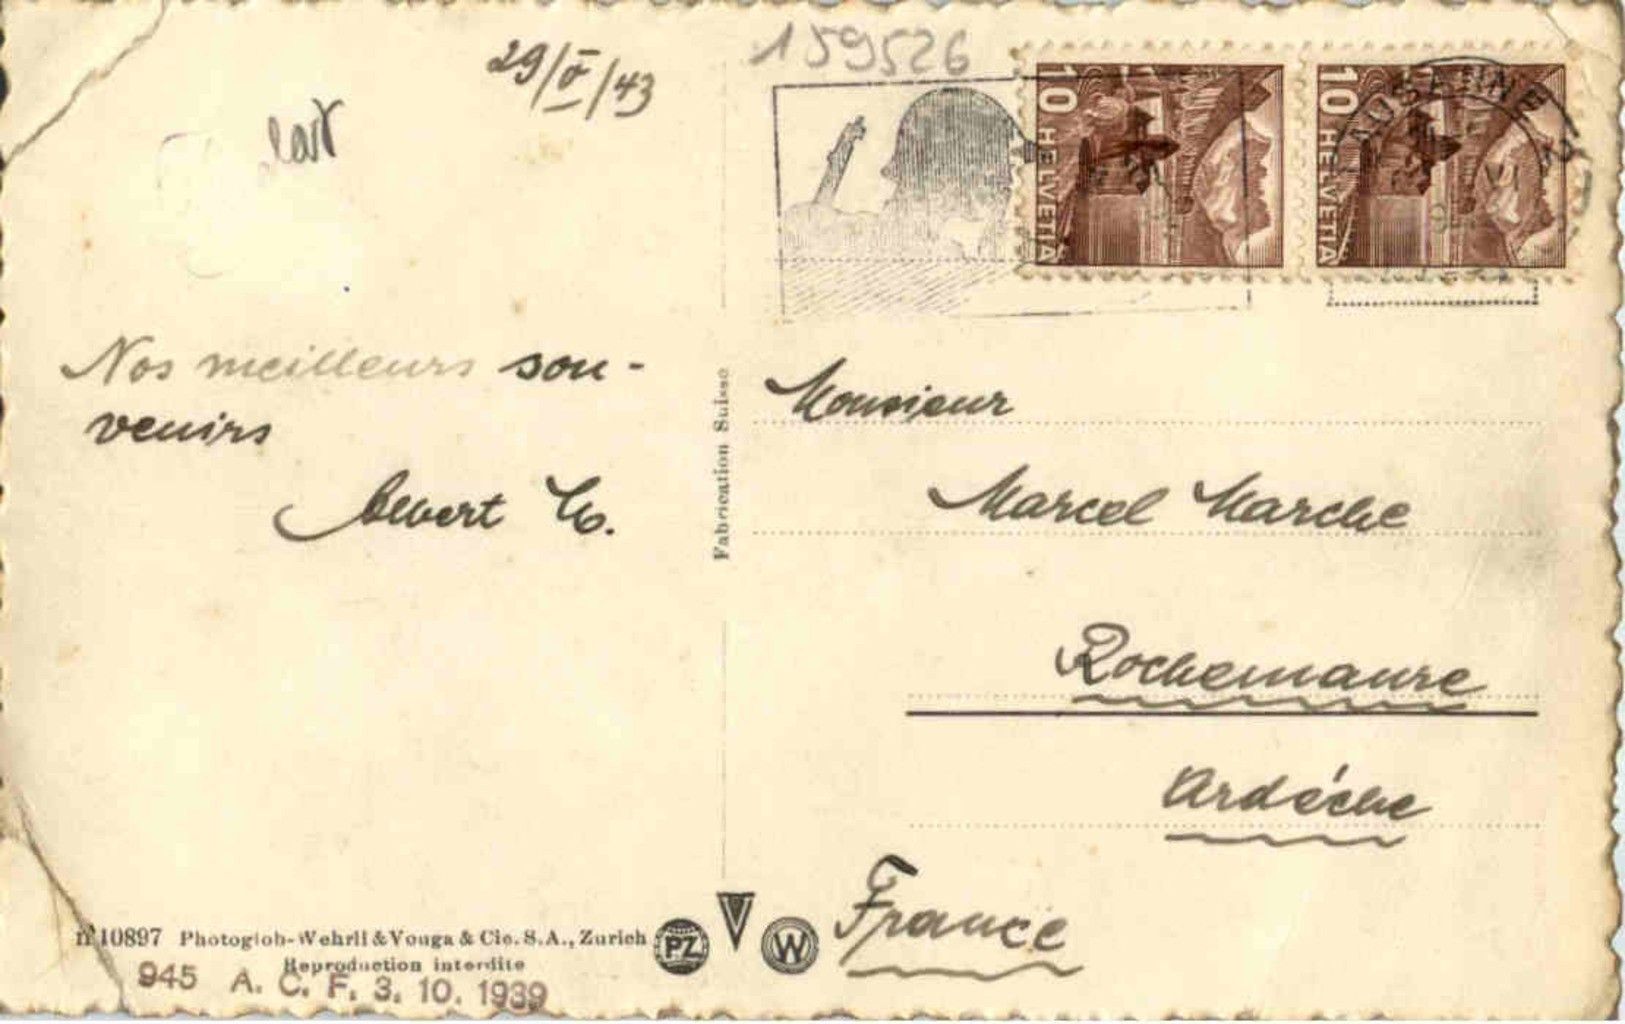 29/V/43
159526
10 HELVETIA
10 HELVETIA
LAUSANNE
Nos meilleurs sou-
venirs
Albert
Fabrication Suisse
Monsieur
Marcel Marche
Rochemaure
Ardèche
France
nº 10897 Photoglob-Wehrli & Vouga & Cie. S. A., Zurich
PZ V W
Reproduction interdite
945 A. C. F. 3. 10. 1939